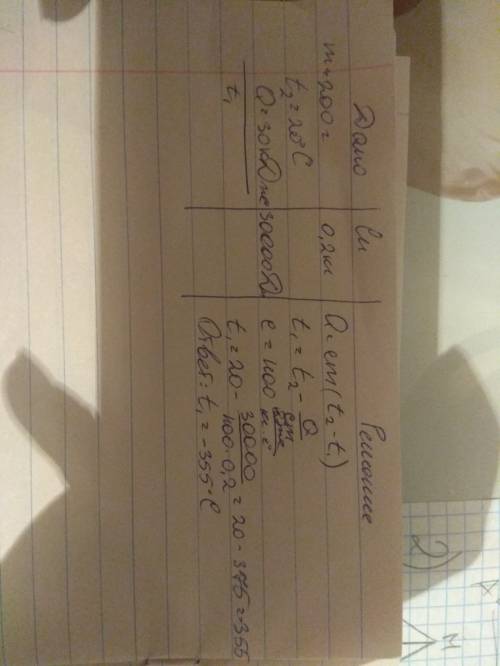 Дано
m = 200 г
t₂ = 20°C
Q = 30 кДж
t₁
Си
0,2 кг
30000 Дж
Решение
Q = cm(t₂ - t₁)
t₁ = t₂ - Q/cm
c = 400 Дж/кг·°C
t₁ = 20 - 30000/400·0,2 = 20 - 375 = -355
Ответ: t₁ = -355°C
2)
М